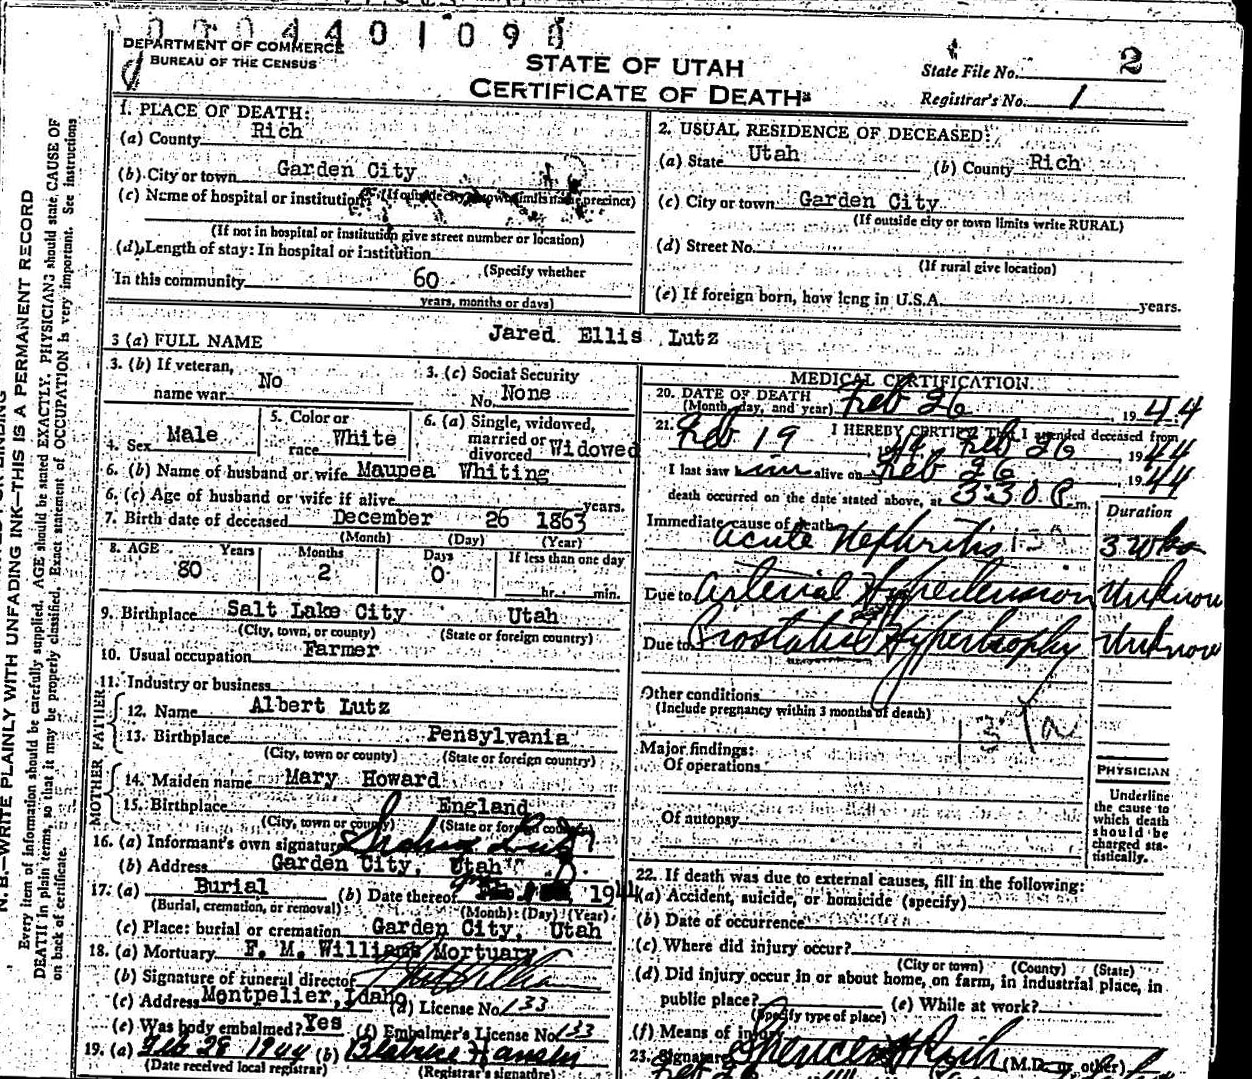 0 3 0 4 4 0 1 0 9 8
DEPARTMENT OF COMMERCE
BUREAU OF THE CENSUS
STATE OF UTAH
CERTIFICATE OF DEATH
State File No. 2
Registrar's No. 1
N. B.—WRITE PLAINLY WITH UNFADING INK—THIS IS A PERMANENT RECORD
Every item of information should be carefully supplied. AGE should be stated EXACTLY. PHYSICIANS should state CAUSE OF
DEATH in plain terms, so that it may be properly classified. Exact statement of OCCUPATION is very important. See instructions
on back of certificate.
1. PLACE OF DEATH:
(a) County Rich
(b) City or town Garden City
(If outside city or town limits name precinct)
(c) Name of hospital or institution:
(If not in hospital or institution give street number or location)
(d) Length of stay: In hospital or institution
(Specify whether
In this community 60
years, months or days)
2. USUAL RESIDENCE OF DECEASED:
(a) State Utah (b) County Rich
(c) City or town Garden City
(If outside city or town limits write RURAL)
(d) Street No.
(If rural give location)
(e) If foreign born, how long in U.S.A. years.
3 (a) FULL NAME Jared Ellis Lutz
3. (b) If veteran,
name war No
3. (c) Social Security
No. None
4. Sex Male
5. Color or
race White
6. (a) Single, widowed,
married or
divorced Widowed
6. (b) Name of husband or wife Maupea Whiting
6. (c) Age of husband or wife if alive years.
7. Birth date of deceased December 26 1863
(Month) (Day) (Year)
8. AGE Years Months Days If less than one day
80 2 0 hr. min.
9. Birthplace Salt Lake City Utah
(City, town, or county) (State or foreign country)
10. Usual occupation Farmer
11. Industry or business
FATHER
12. Name Albert Lutz
13. Birthplace Pensylvania
(City, town or county) (State or foreign country)
MOTHER
14. Maiden name Mary Howard
15. Birthplace England
(City, town or county) (State or foreign country)
16. (a) Informant's own signature Lutz
(b) Address Garden City, Utah
17. (a) Burial (b) Date thereof 1944
(Burial, cremation, or removal) (Month) (Day) (Year)
(c) Place: burial or cremation Garden City, Utah
18. (a) Mortuary F. M. Williams Mortuary
(b) Signature of funeral director
(c) Address Montpelier, Idaho (d) License No. 133
(e) Was body embalmed? Yes (f) Embalmer's License No. 133
19. (a) Feb 28 1944 (b) Beatrice Hansen
(Date received local registrar) (Registrar's signature)
MEDICAL CERTIFICATION
20. DATE OF DEATH
(Month, day, and year) Feb 26, 1944
21. I HEREBY CERTIFY THAT I attended deceased from
Feb 19, 44 Feb 26, 1944
I last saw him alive on Feb 26, 1944
death occurred on the date stated above, at 3:30 P. m.
Duration
Immediate cause of death
Acute Nephritis 3 wks
Due to Arterial Hypertension Unknown
Due to Prostatic Hypertrophy Unknown
Other conditions
(Include pregnancy within 3 months of death)
Major findings:
Of operations
Of autopsy
PHYSICIAN
Underline
the cause to
which death
should be
charged sta-
tistically.
22. If death was due to external causes, fill in the following:
(a) Accident, suicide, or homicide (specify)
(b) Date of occurrence
(c) Where did injury occur?
(City or town) (County) (State)
(d) Did injury occur in or about home, on farm, in industrial place, in
public place? (e) While at work?
(Specify type of place)
(f) Means of injury
23. Signature Spencer H Rich (M.D. or other)
Feb 26